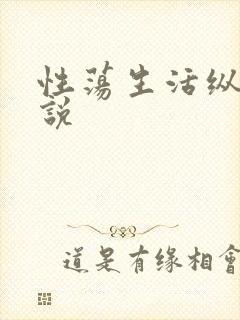 性荡生活纵
說
道是有缘相會